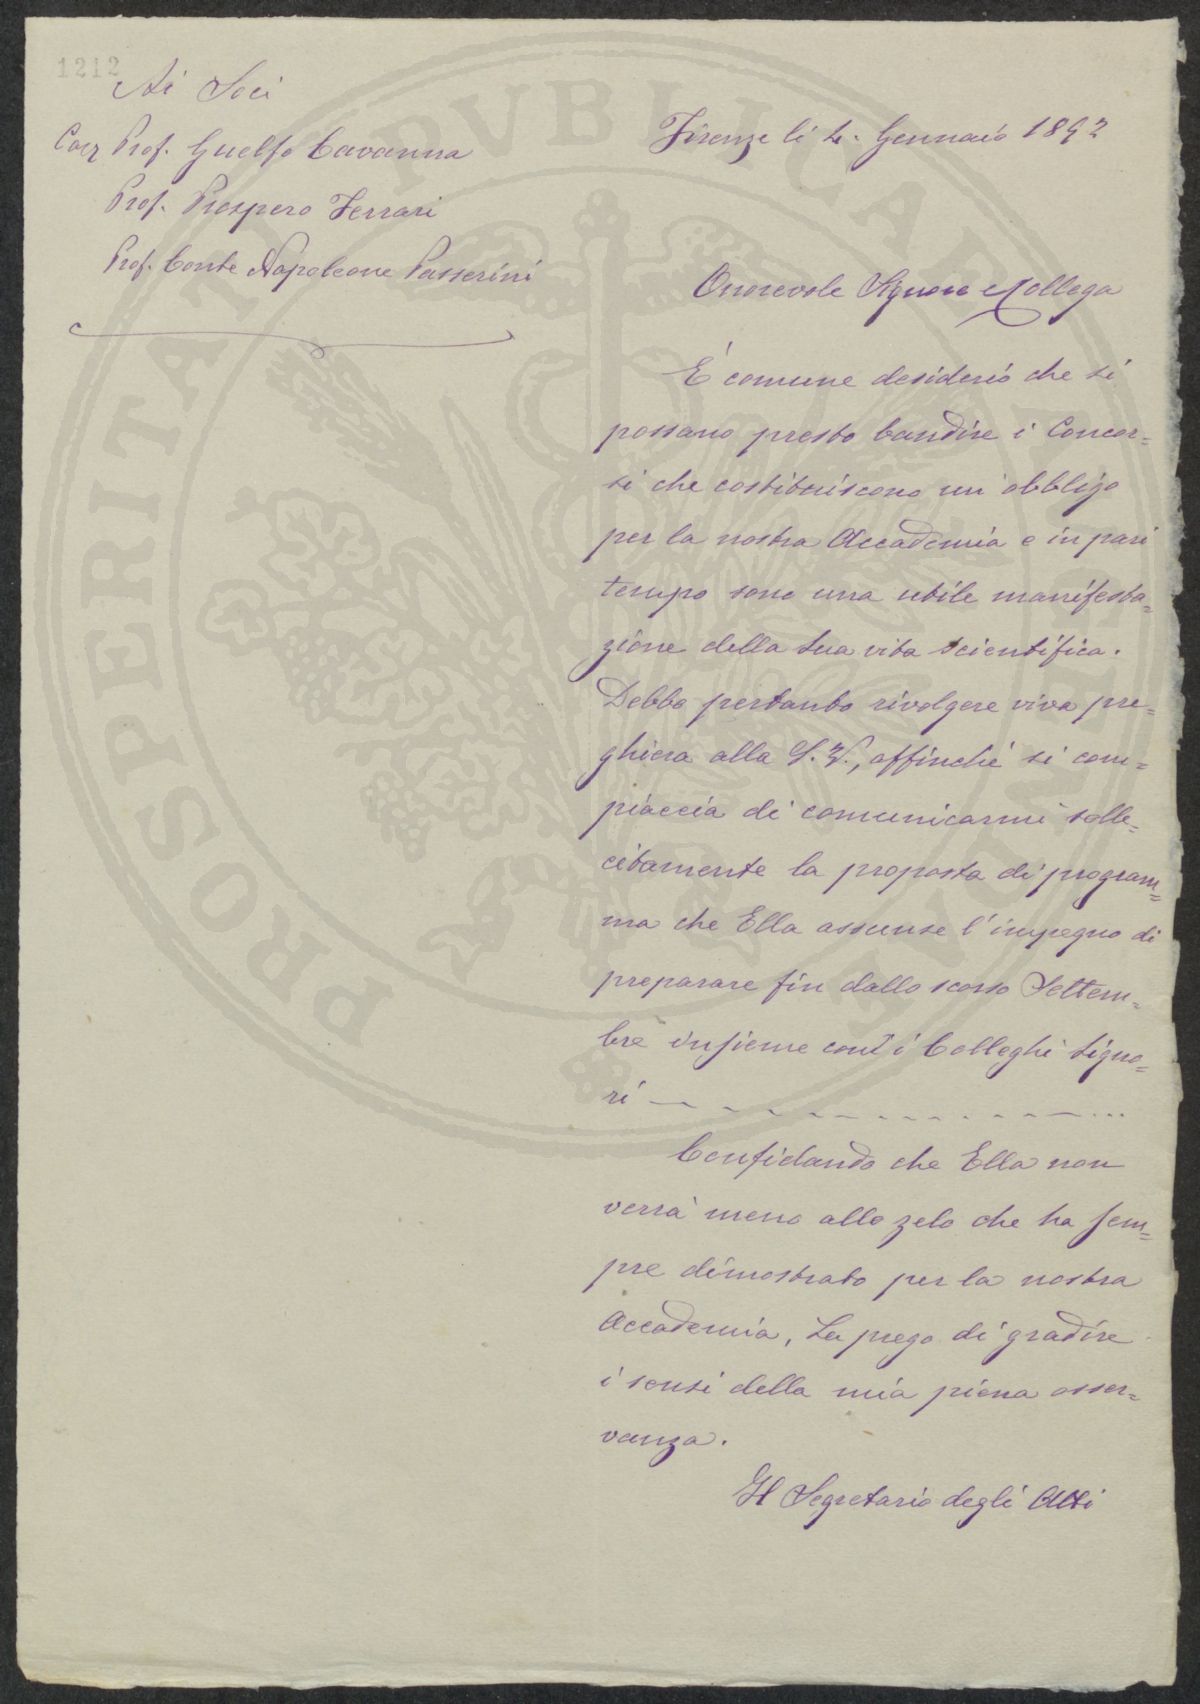 1212
Ai Soci
Prof. Guelfo Cavanna
Prof. Prospero Ferrari
Prof. Conte Napoleone Passerini
Firenze lì Gennaio 1892
Onorevole Signore e Collega
È comune desiderio che si
possano presto bandire i Concor=
si che costituiscono un obbligo
per la nostra Accademia e in pari
tempo sono una utile manifesta=
zione della sua vita scientifica.
Debbo pertanto rivolgere viva pre=
ghiera alla S.V., affinché si com=
piaccia di comunicarmi solle=
citamente la proposta di program=
ma che Ella assunse l'impegno di
preparare fin dallo scorso Settem=
bre insieme con i Colleghi Signo=
ri
Confidando che Ella non
verrà meno allo zelo che ha sem=
pre dimostrato per la nostra
Accademia, La prego di gradire
i sensi della mia piena osser=
vanza.
Il Segretario degli Atti
PROSPERITATI PVBLICAE